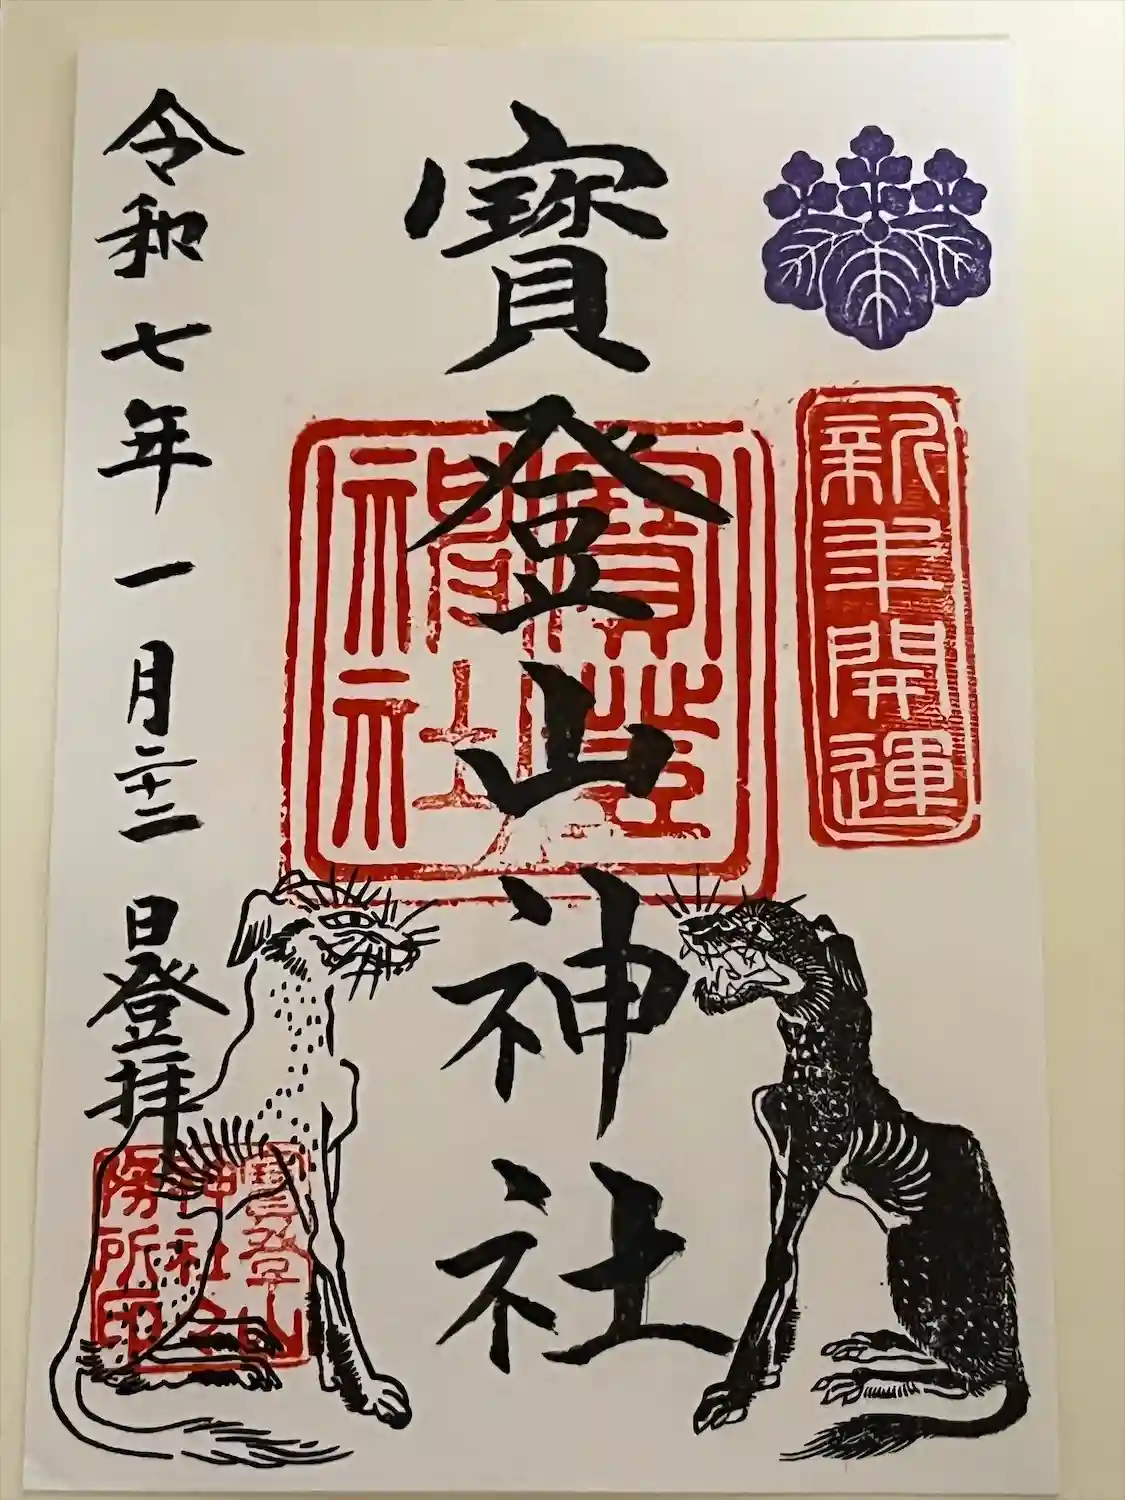 新年開運
寶登山神社
寶登山
神社
令和七年一月二十二日登拝
寶登山
神社
務所印